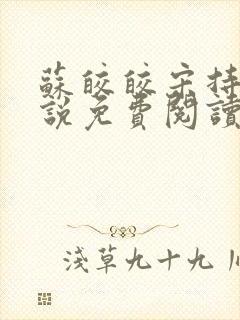 蘇皎皎宋持
說免費閱讀
淺草九十九